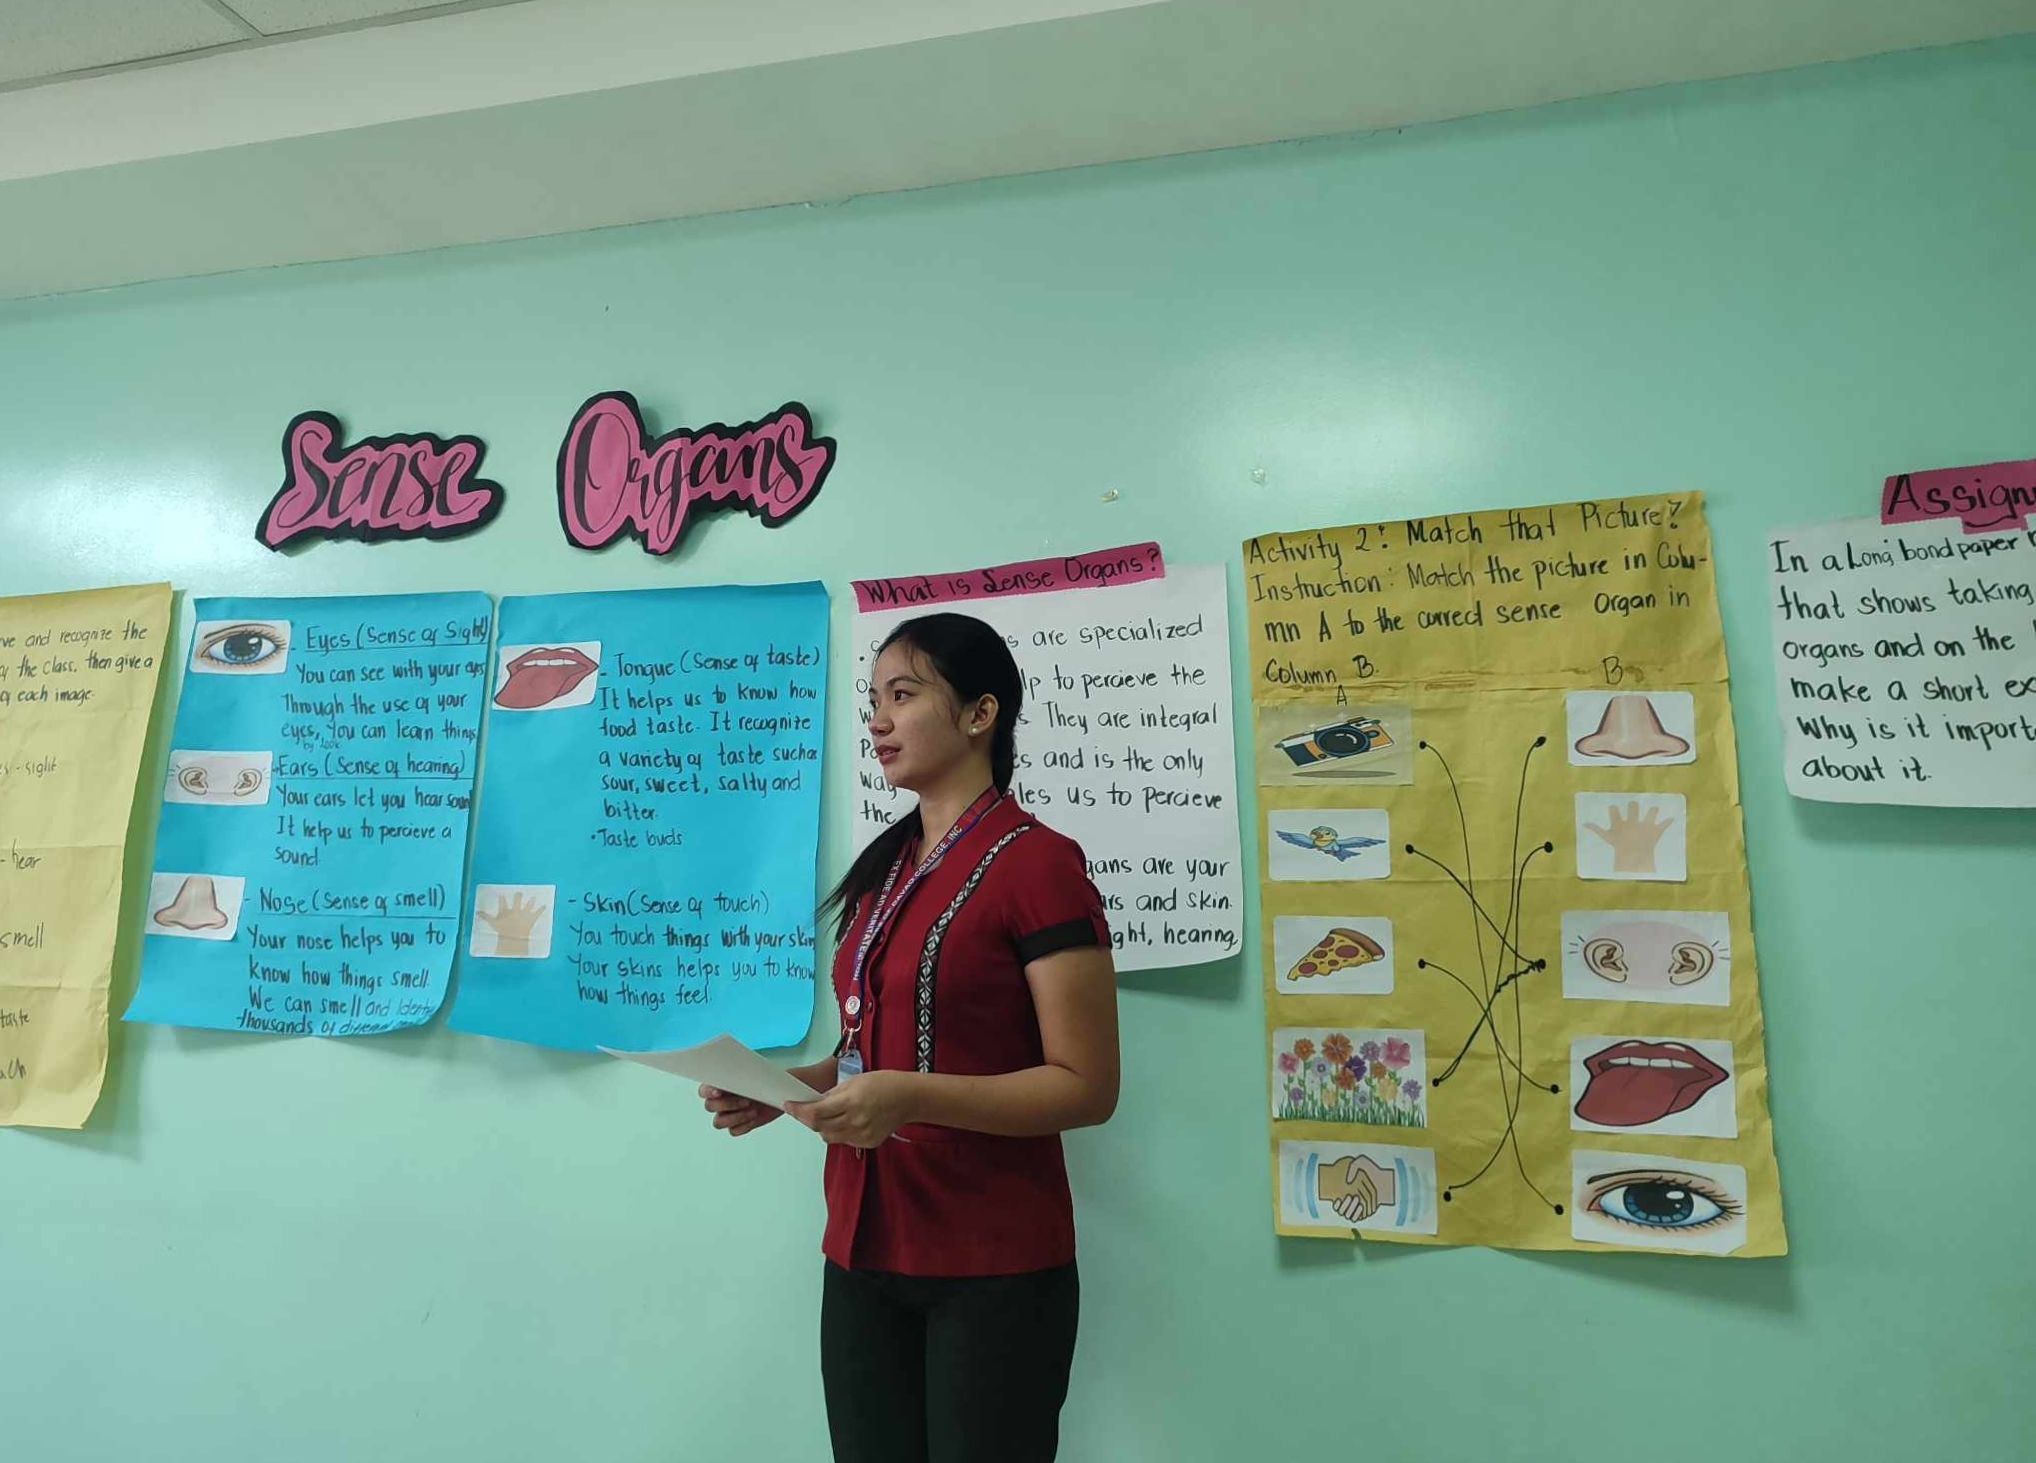 Sense Organs
and recognize the
the class. then give a
each image.
- sight
- hear
smell
taste
Eyes (Sense of Sight)
You can see with your eyes
Through the use of your
eyes, You can learn things
by look
-Ears (Sense of hearing)
Your ears let you hear sound
It help us to percieve a
sound.
- Nose (Sense of smell)
Your nose helps you to
know how things smell.
We can smell and
thousands of different
- Tongue (Sense of taste)
It helps us to know how
food taste. It recognize
a variety of taste such as
sour, sweet, salty and
bitter.
• Taste buds
- Skin (Sense of touch)
You touch things with your skin
Your skins helps you to know
how things feel.
What is Sense Organs?
are specialized
to percieve the
They are integral
and is the only
us to percieve
the
are your
and skin.
hearing
EX FIDE AD VERITATEM
DAVAO COLLEGE, INC
Activity 2: Match that Picture?
Instruction: Match the picture in Colu-
mn A to the correct sense Organ in
Column B.
A
B
In a Long bond paper
that shows taking
organs and on the
make a short
Why is it
about it.